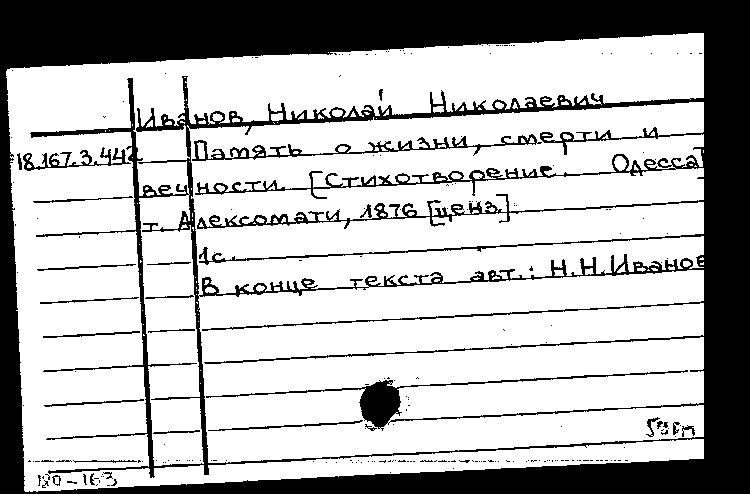 Иванов, Николай Николаевич
18.167.3.442 Память о жизни, смерти и
вечности. [Стихотворение. Одесса]
т. Алексомати, 1876 [ценз.].
1с.
В конце текста авт.: Н.Н.Иванов
180-163